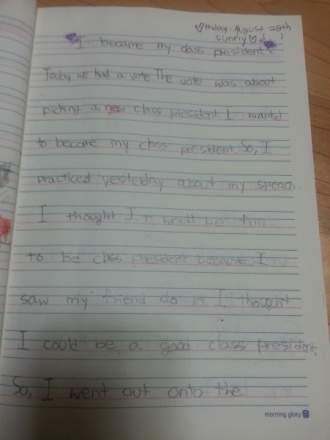 Friday August 28th
sunny
I became my class president!
Today we had a vote. The vote was about
picking a new class president. I wanted
to become my class president. So, I
practiced yesterday about my speach.
I thought It would be fun
to be class president because I
saw my friend do it. I thought
I could be a good class president.
So, I went out onto the
morning glory